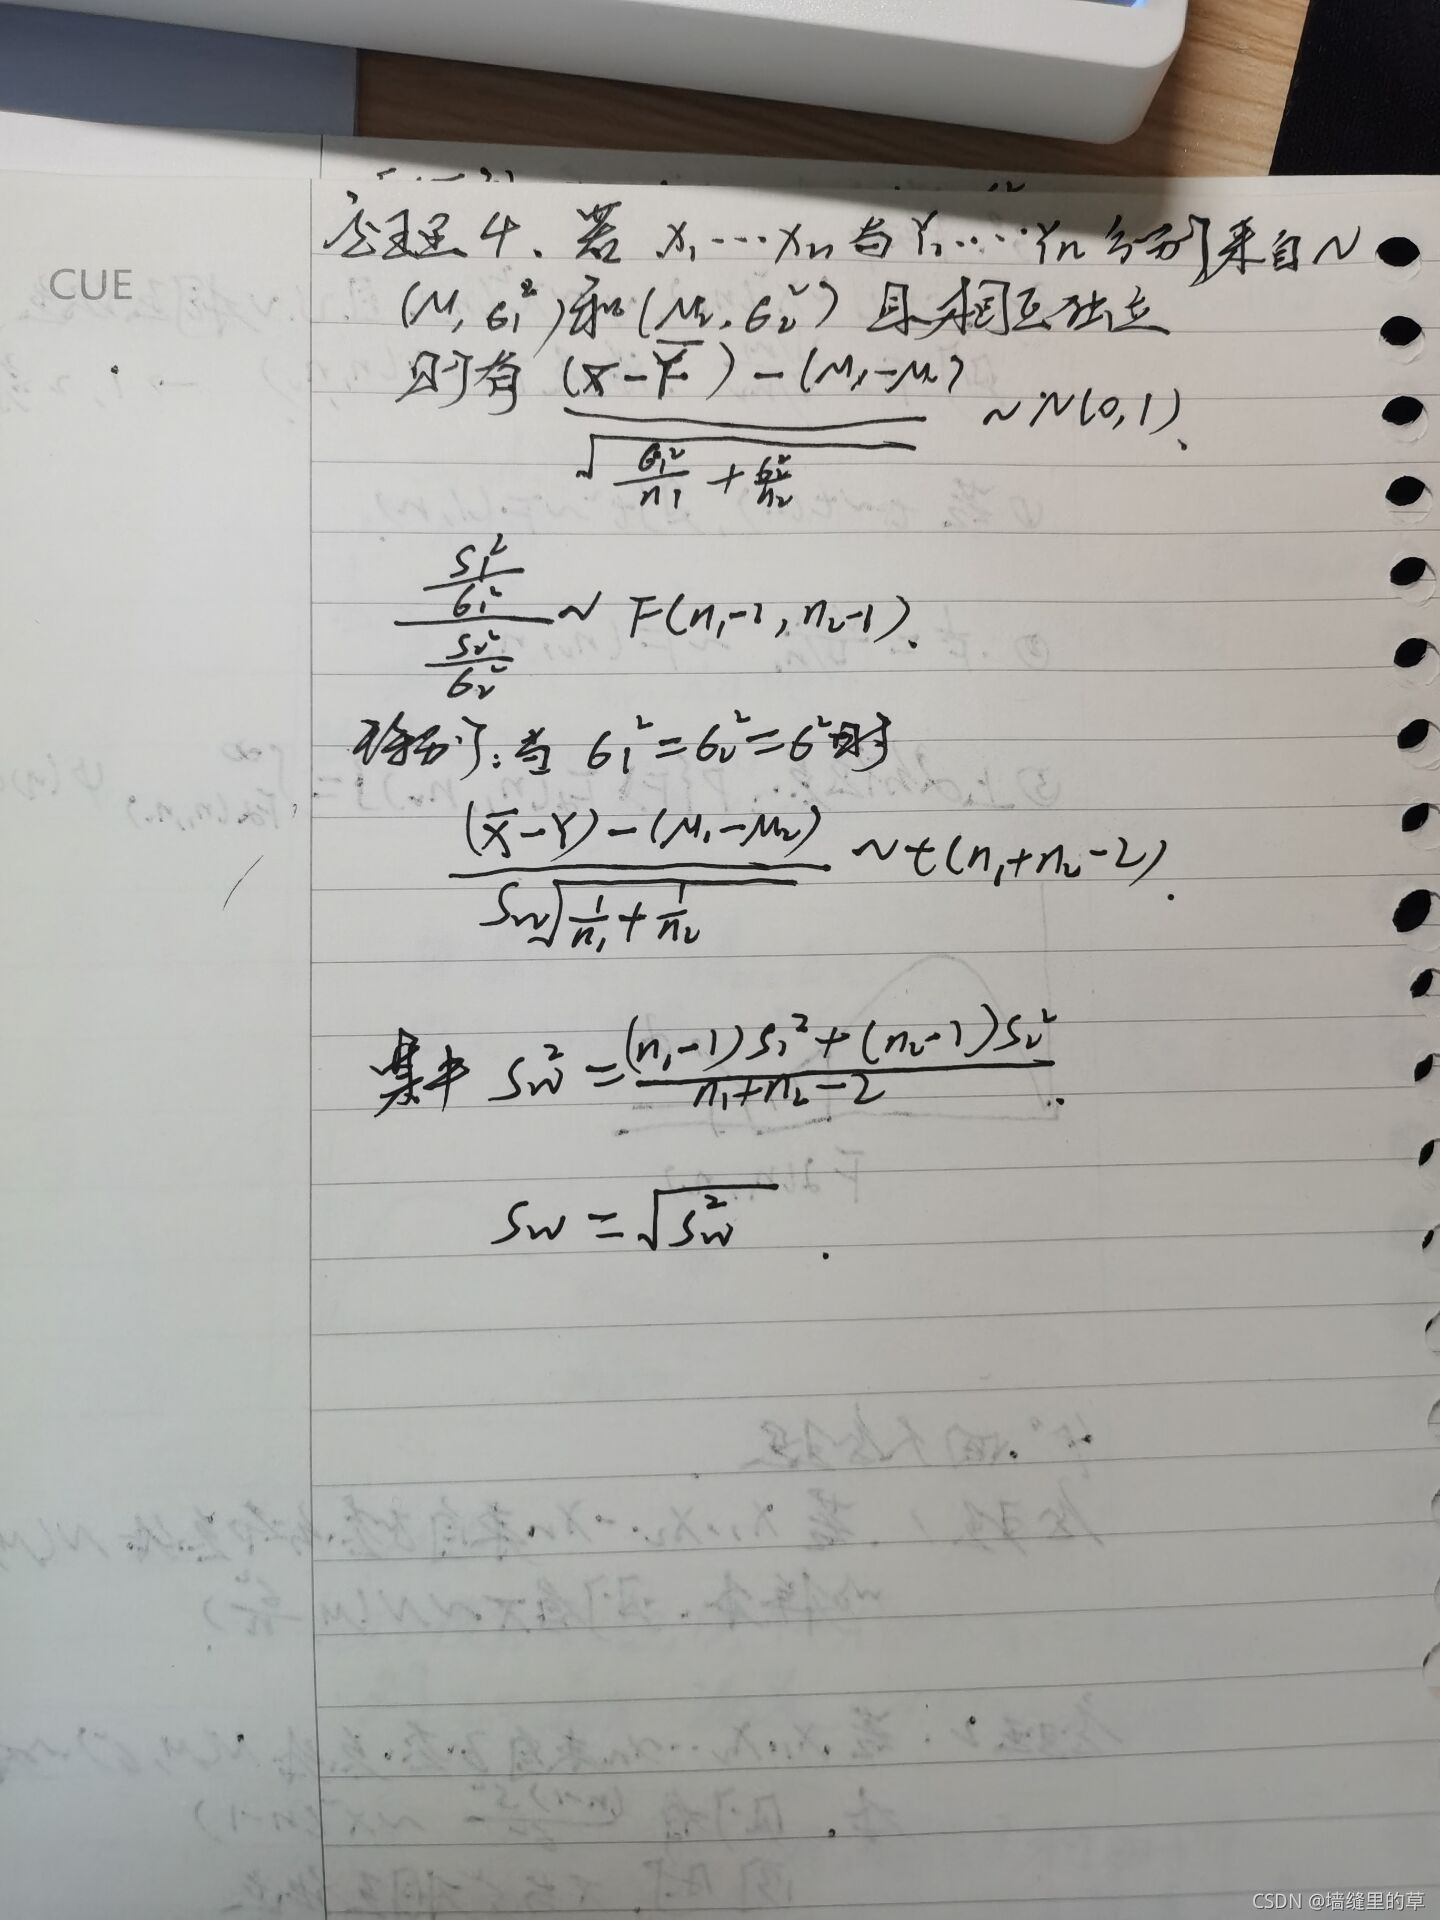 CUE
定理4、若 X₁…Xn 与 Y₁…Yn 分别来自 N
(μ, σ₁²) 和 (μ₂, σ₂²) 且相互独立
则有 ((X̄-Ȳ)-(μ₁-μ₂))/√(σ₁²/n₁+σ₂²/n₂) ~ N(0,1)、
(S₁²/σ₁²)/(S₂²/σ₂²) ~ F(n₁-1, n₂-1).
特别: 当 σ₁²=σ₂²=σ²时
((X̄-Y)-(μ₁-μ₂))/(Sw√(1/n₁+1/n₂)) ~ t(n₁+n₂-2).
其中 Sw²=((n₁-1)S₁²+(n₂-1)S₂²)/(n₁+n₂-2)
Sw=√Sw² .
CSDN @墙缝里的草